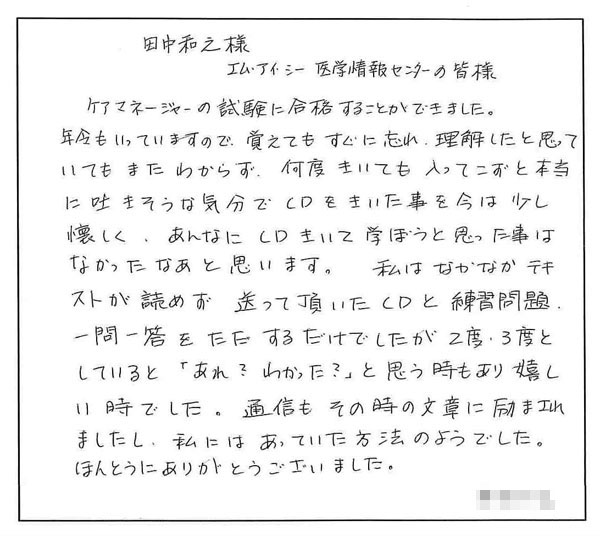 田中和之様
エム・アイ・シー 医学情報センターの皆様
ケアマネージャーの試験に合格することができました。
年令もいっていますので、覚えてもすぐに忘れ、理解したと思って
いてもまたわからず、何度きいても入ってこずと本当
に吐きそうな気分でCDをきいた事を今は少し
懐しく、あんなにCDきいて学ぼうと思った事は
なかったなあと思います。 私はなかなかテキ
ストが読めず 送って頂いたCDと練習問題、
一問一答をただするだけでしたが2度・3度と
していると「あれ?わかった?」と思う時もあり嬉し
い時でした。通信もその時の文章に励まされ
ましたし、私にはあっていた方法のようでした。
ほんとうにありがとうございました。